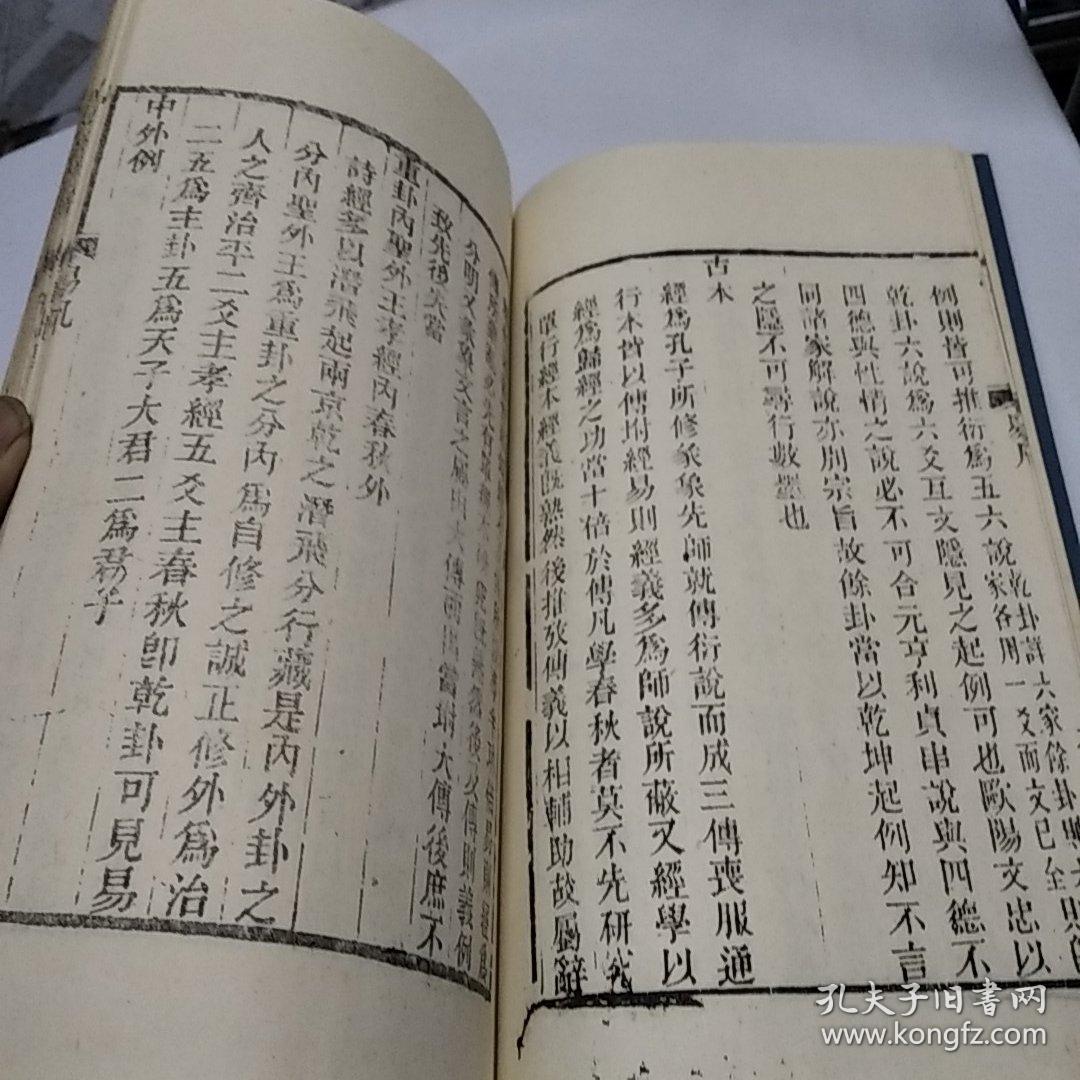 乾卦詳六家餘卦
家各用一爻而文已全
例則皆可推衍爲五六說
乾卦六說爲六爻互文隱見之起例可也歐陽文忠以
四德與性情之說必不可合元亨利貞串說與四德不
同諸家解說亦別宗旨故餘卦當以乾坤起例知不言
之隱不可尋行數墨也
古本
經爲孔子所修彖象先師就傳衍說而成三傳喪服通
行本皆以傳坿經易則經義多爲師說所蔽又經學以
經爲歸經之功當十倍於傳凡學春秋者莫不先研究
單行經本經義既熟然後推攷傳義以相輔助故屬辭
分明又彖象文言之屬由大傳而出當坿大傳後庶不
致先後失當
重卦內聖外王孝經內春秋外
詩經多以潛飛起兩京乾之潛飛分行藏是內外卦之
分內聖外王爲重卦之分內爲自修之誠正修外爲治
人之齊治平二爻主孝經五爻主春秋卽乾卦可見易
二五爲主卦五爲天子大君二爲君子
中外例
孔夫子旧书网
www.kongfz.com